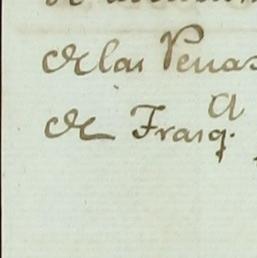 de las Penas
de Frasq.a